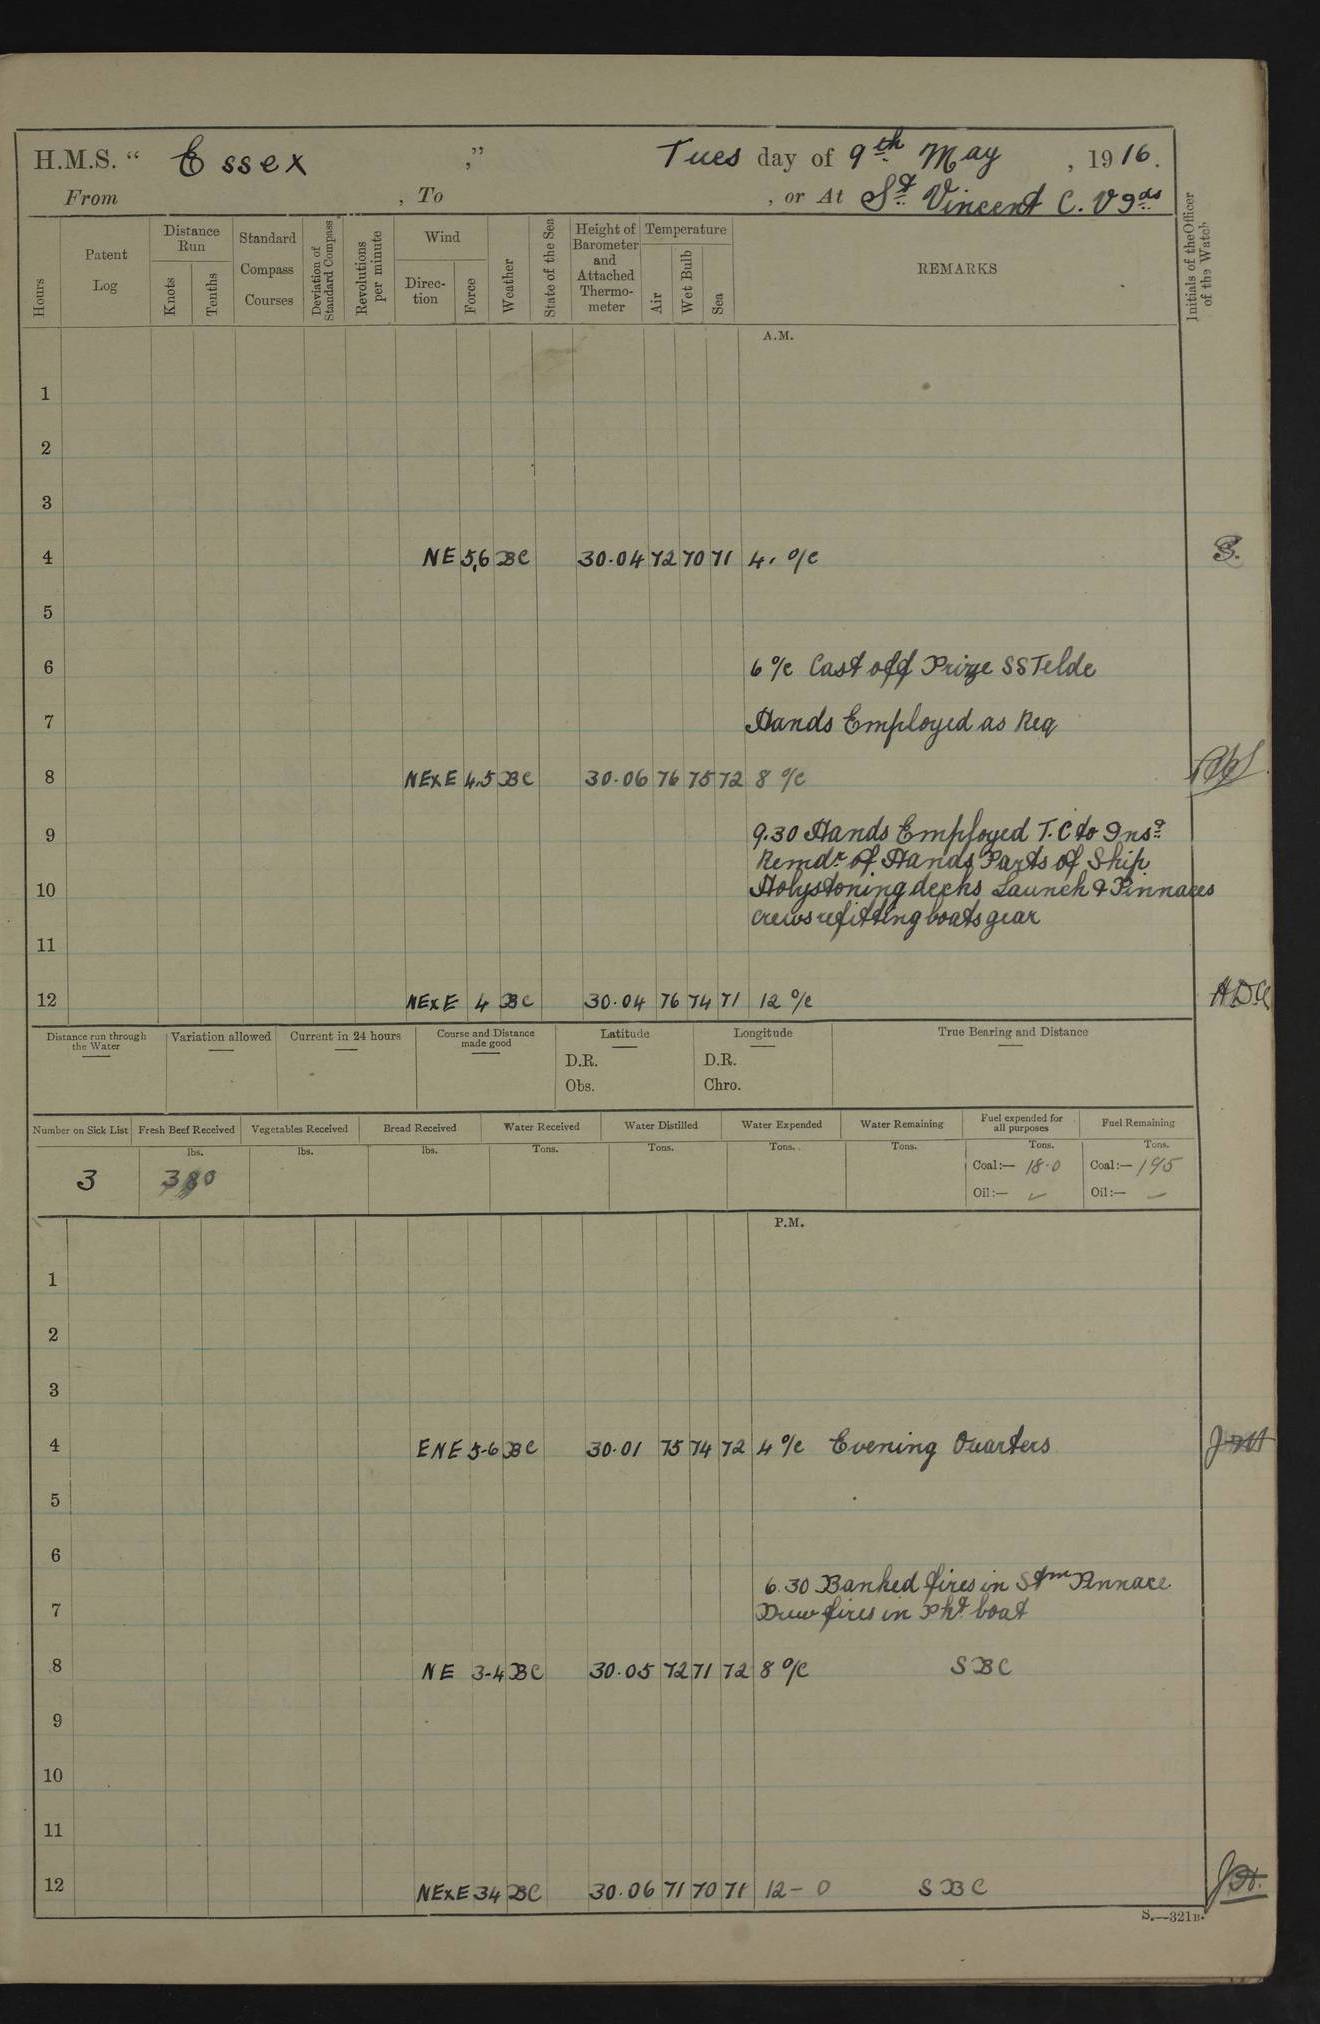 H.M.S. “ Essex ,” Tues day of 9th May , 1916.
From , To , or At St Vincent C. V Ids
Hours
Patent Log
Distance Run
Knots
Tenths
Standard Compass Courses
Deviation of Standard Compass
Revolutions per minute
Wind
Direc-tion
Force
Weather
State of the Sea
Height of Barometer and Attached Thermo-meter
Temperature
Air
Wet Bulb
Sea
REMARKS
Initials of the Officer of the Watch
A.M.
1
2
3
4 NE 5,6 BC 30.04 72 70 71 4. o/c S.
5
6 6 o/c Cast off Prize SS Telde
7 Hands Employed as Req
8 NExE 4.5 BC 30.06 76 75 72 8 o/c
9 9.30 Hands Employed T.C to Insd
Remdr of Hands Parts of Ship
10 Holystoning decks Launch & Pinnaces
crews refitting boats gear
11
12 NExE 4 BC 30.04 76 74 71 12 o/c
Distance run through the Water
Variation allowed
Current in 24 hours
Course and Distance made good
Latitude
D.R.
Obs.
Longitude
D.R.
Chro.
True Bearing and Distance
Number on Sick List
Fresh Beef Received
Vegetables Received
Bread Received
Water Received
Water Distilled
Water Expended
Water Remaining
Fuel expended for all purposes
Fuel Remaining
lbs. lbs. lbs. Tons. Tons. Tons. Tons. Tons. Tons.
3 380 Coal:— 18.0 Coal:— 195
Oil:— Oil:—
P.M.
1
2
3
4 ENE 5-6 BC 30.01 75 74 72 4 o/c Evening Quarters
5
6
6.30 Banked fires in Stm Pinnace
7 Drew fires in Pkt boat
8 NE 3-4 BC 30.05 72 71 72 8 o/c SBC
9
10
11
12 NExE 34 BC 30.06 71 70 71 12 - 0 SBC
S.—321B.